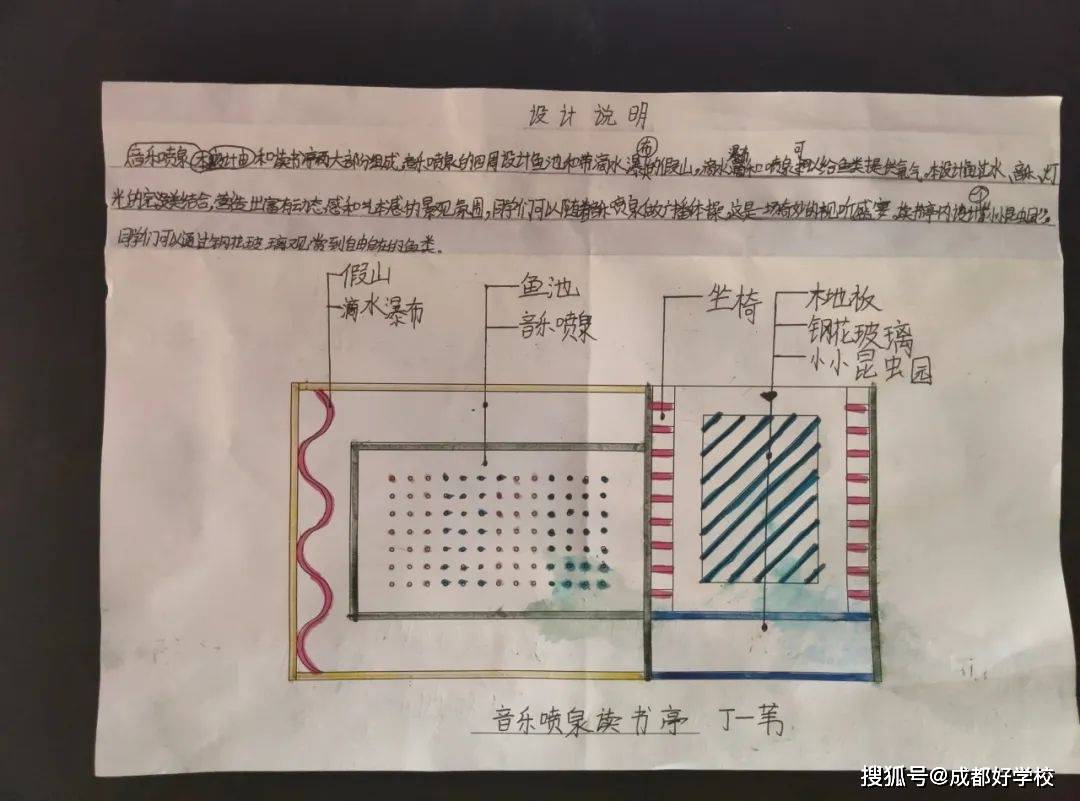 设计说明
音乐喷泉(本设计由)和读书亭两大部分组成,音乐喷泉的四周设计鱼池和带滴水瀑布的假山,滴水瀑布和喷泉可以给鱼类提供氧气,本设计通过水、音乐、灯
光的完美结合,营造出富有动态感和艺术感的景观氛围,同学们可以随着音乐喷泉做广播体操,这是一场奇妙的视听盛宴,读书亭内设计个小小昆虫园,
同学们可以通过钢花玻璃观赏到自由自在的鱼类.
假山
滴水瀑布
鱼池
音乐喷泉
坐椅
木地板
钢花玻璃
小小昆虫园
音乐喷泉读书亭 丁一苇
搜狐号@成都好学校